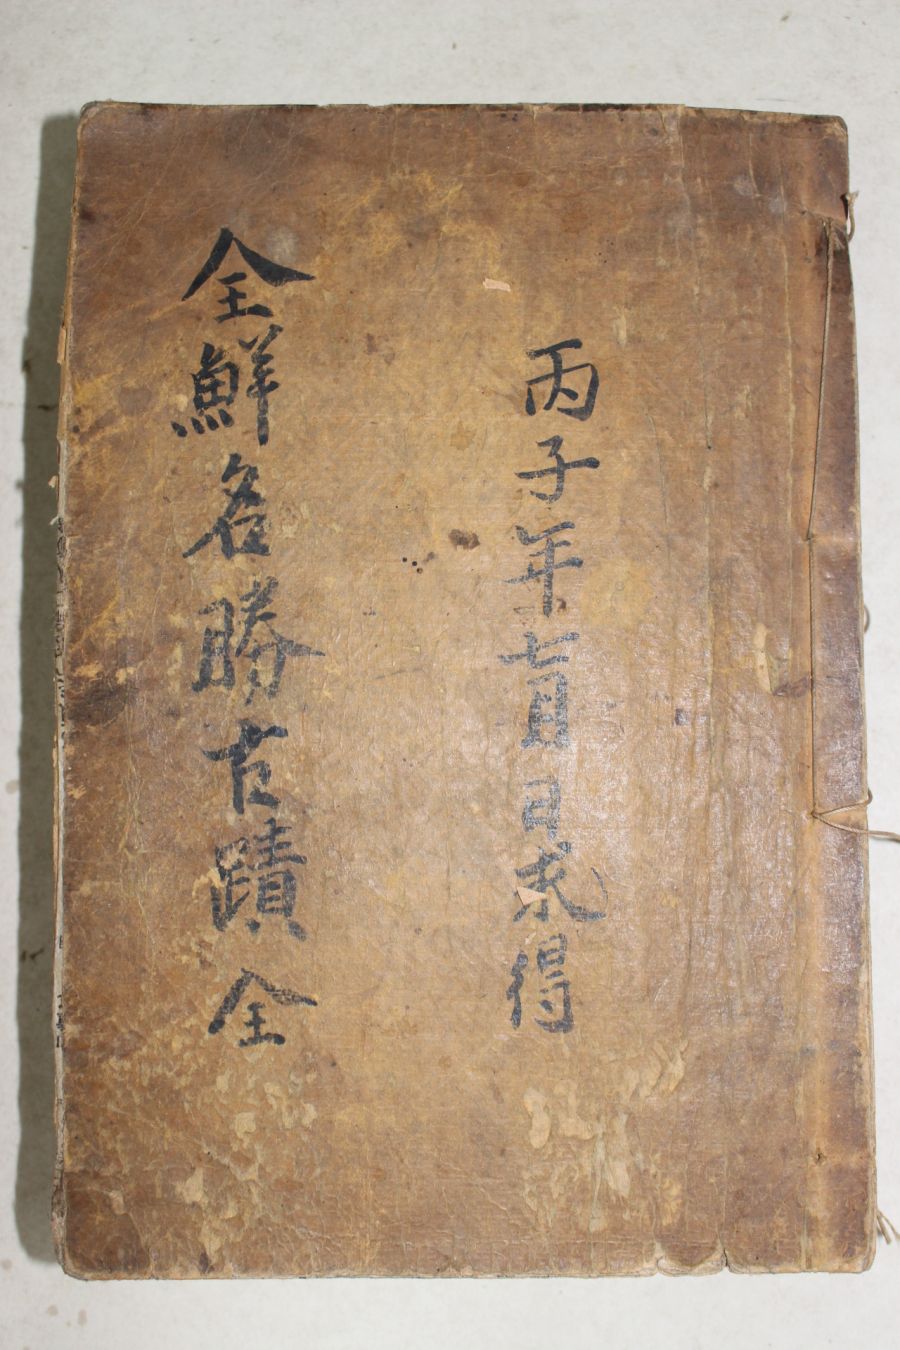 丙子年七月 日求得
全鮮名勝古蹟 全